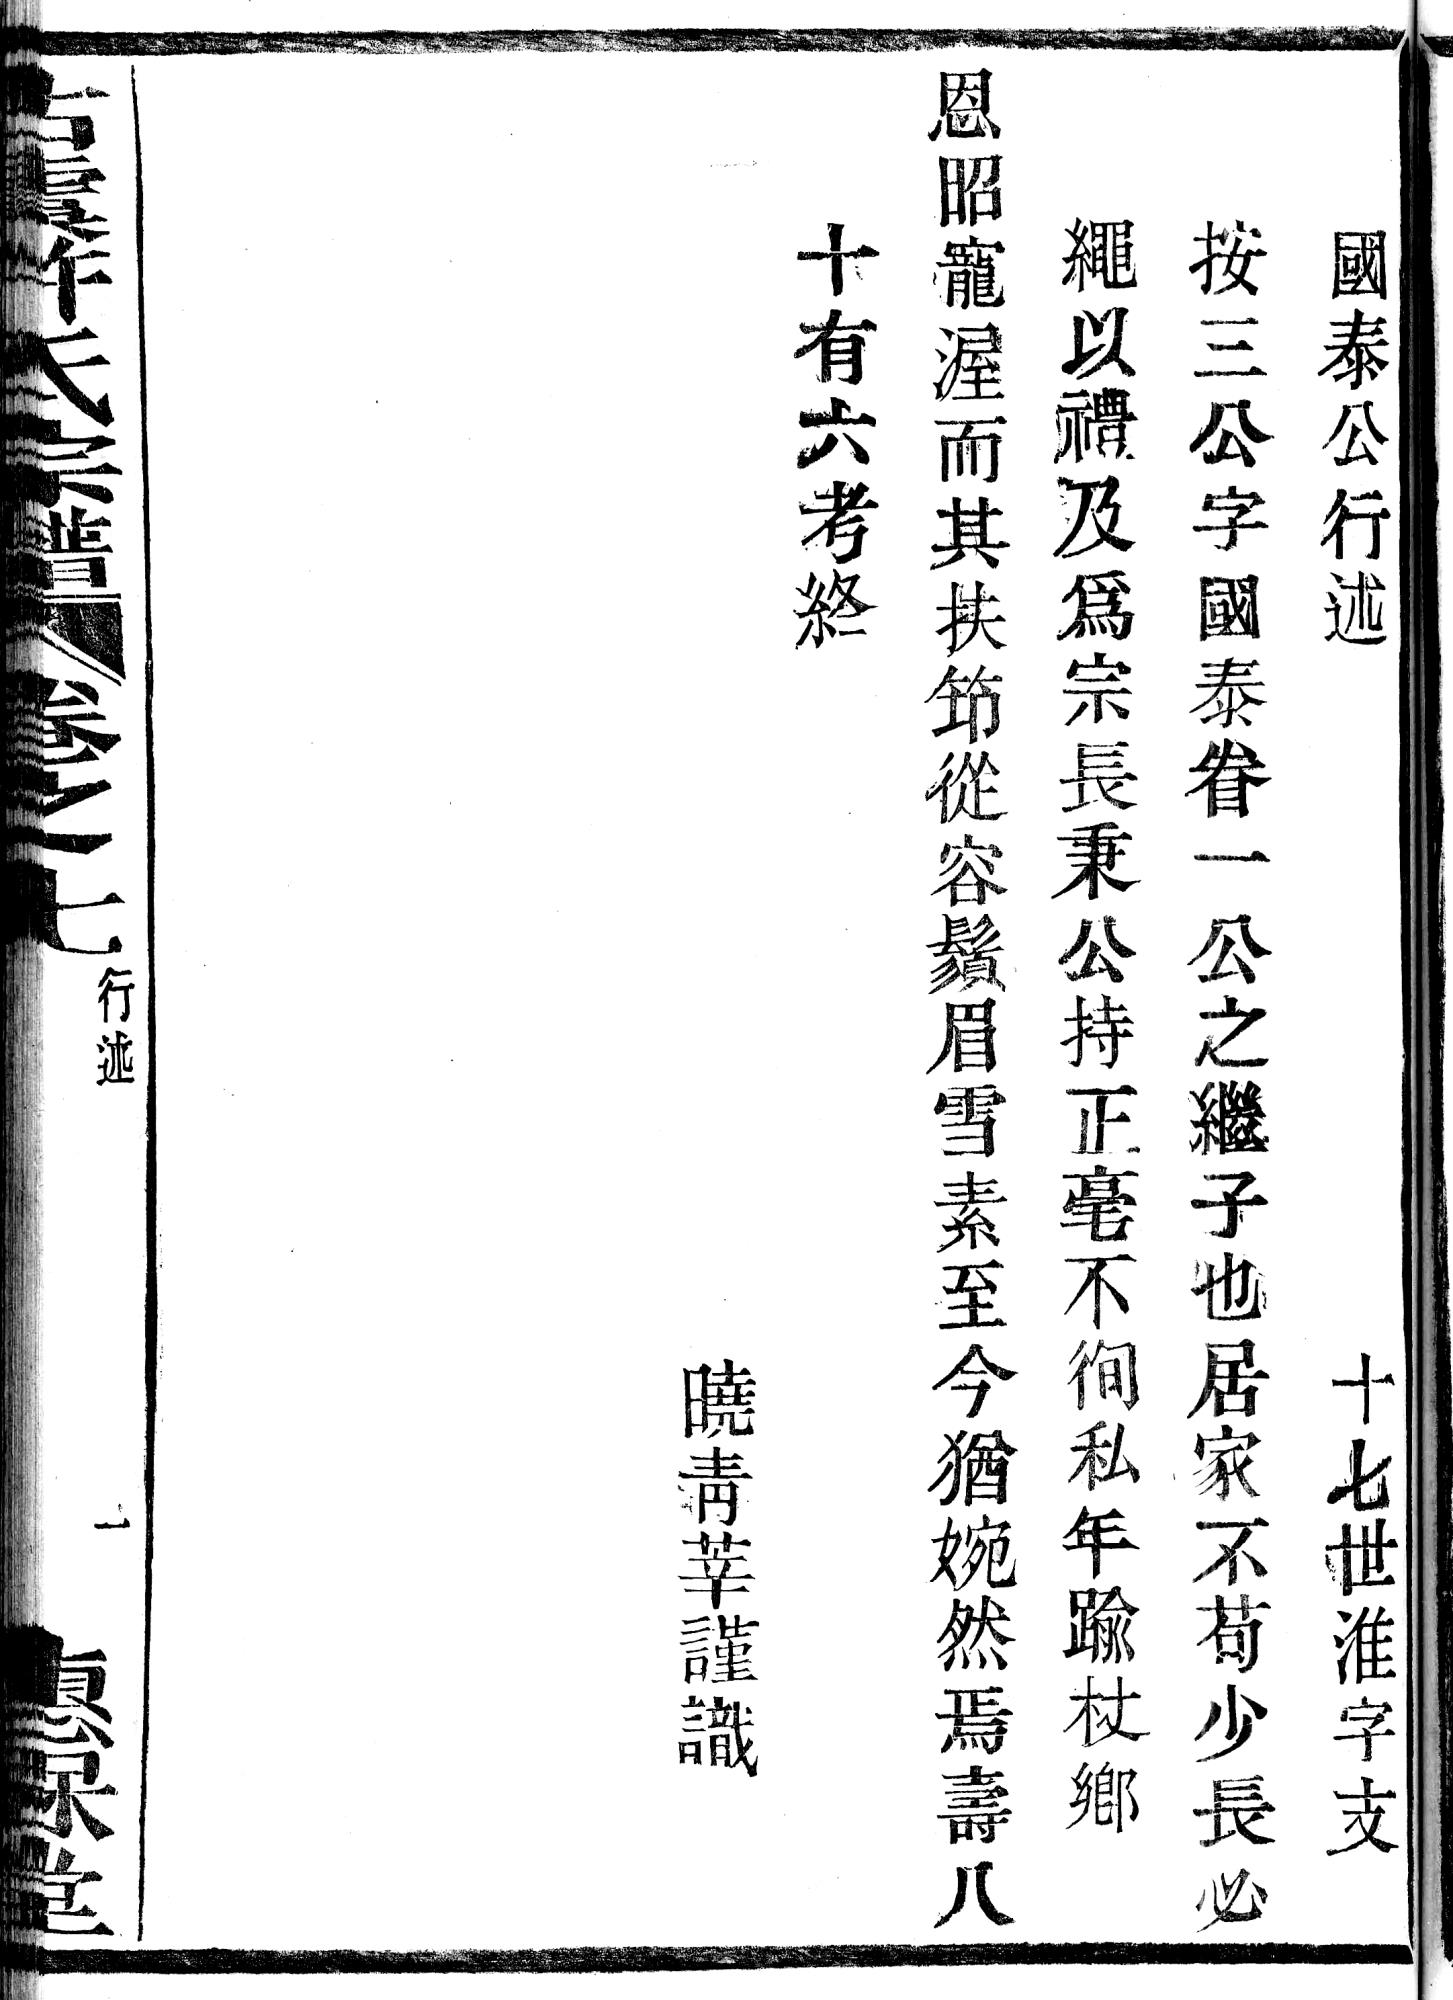 國泰公行述　十七世淮字支
按三公字國泰眷一公之繼子也居家不苟少長必
繩以禮及爲宗長秉公持正毫不徇私年踰杖鄉
恩昭寵渥而其扶笻從容鬚眉雪素至今猶婉然焉壽八
十有六考終
曉青莘謹識
氏宗譜 卷之七 行述 一